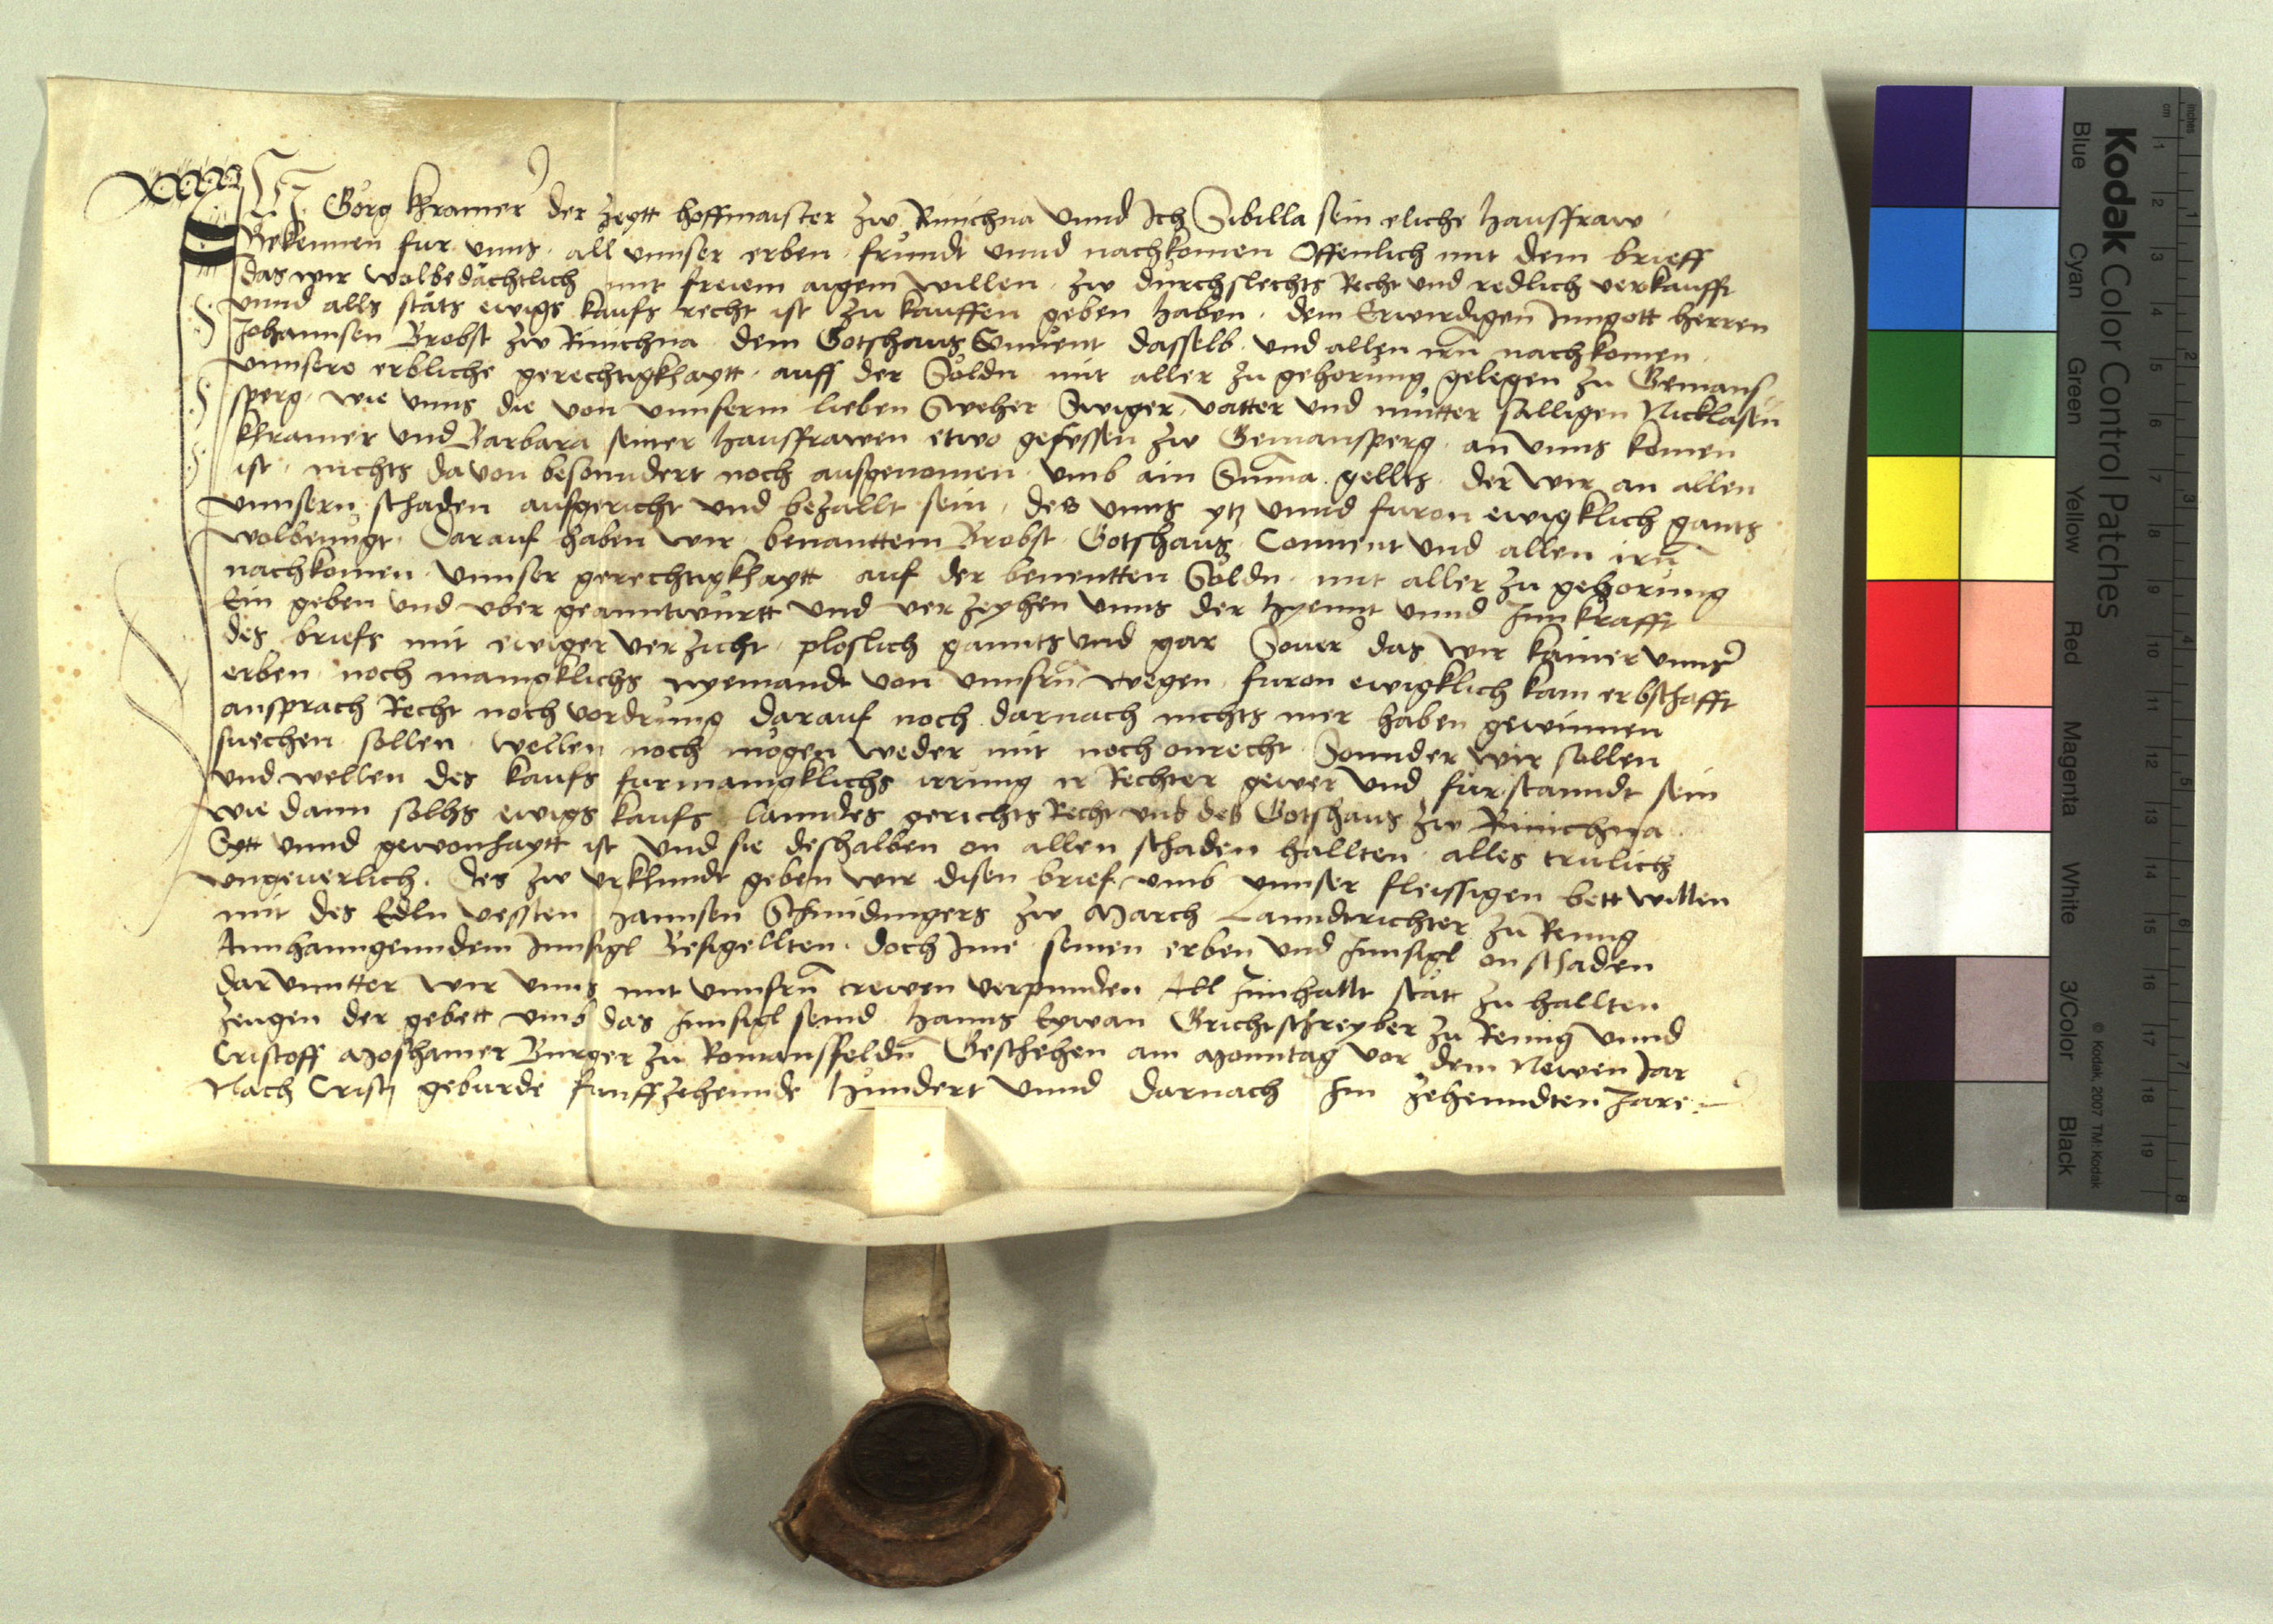 Ich Görg Khramer der Zeytt hoffmaister zw Rinichna Vnnd Ich Sibilla sein eliche haussfraw
Bekennen fur vnns all vnnser erben fründt vnnd nachkomen Offenlich mit dem brieff
das wir wolbedächtlich mit freiem aigem willen zw durchslechts Recht vnd redlich verkaufft
vnnd alls stäts ewigs kaufs recht ist zu kauffen geben haben dem Erwirdigen Inngott herren
Johannsen Brobst zw Rinichna dem Gotshaus Conuent dasselb vnd allen irn nachkomen
vnnsere erbliche gerechtigkhaytt auff der Söldn mit aller zu gehorung gelegen zu Gemans
sperg wie vnns die von vnnserm lieben Sweher Swiger vatter vnd mütter sälligen Nicklasen
khramer vnd Barbara seiner haussfrawen etwo gesessen zw Gemansperg an vnns komen
ist nichts dauon besonndert noch ausgenomen vmb ain Suma gellts der wir an allen
vnnsern schaden ausgericht vnd bezallt sein des vnns ytz vnnd furon ewigklich gants
wolbenügt Darauf haben wir benanttem Brobst Gotshaus Conuent vnd allen irn
nachkomen vnnser gerechtigkhaytt auf der benentten Söldn mit aller zu gehorung
Ein geben vnd vber geanntwürtt vnd verzeyhen vnns der hyemit vnnd Inn krafft
des briefs mit ewiger verzicht ploslich gannts vnd gar Souer das wir kainer vnnser
erben noch manigklichs nyemandt von vnnsrn wegen furon ewigklich kain erbschafft
ansprach Recht noch vordrung darauf noch darnach nichts mer haben gewinnen
suechen sollen wellen noch mögen weder mit noch on recht Sonnder wir sollen
vnd wellen des kaufs fur manigklichs irrung ir Rechter gewer vnd fürstanndt sein
wie dann solhs ewigs kaufs lanndes gerichts Recht vnd des Gotshaus zw Rinichna
Sytt vnnd gewonhaytt ist vnd sie deshalben on allen schaden hallten alles trulich
vngeuerlich Des zw vrkhundt geben wir disen brief vmb vnnser fleissigen bett willen
mit des Edln vessten hannsen Schmidingers zw March Lanndtrichter zu Renng
Annhanngenndem Innsigl Besigellten doch Ime seinen erben vnd Innsigl on schaden
darvnntter wir vnns mit vnnsrn trewen verpinnden All Innhallt stätt zu hallten
Zeugen der gebett vmb das Innsigl seind hanns Eywan Grichtschreyber zu Renng vnnd
Cristoff Moshamer Burger zu Romansfeldn Geschehen am Monntag vor dem Newen Jar
Nach Cristj geburde funffzehennde hundert vnnd darnach Im zehenndten Jare
Kodak Color Control Patches
Blue Cyan Green Yellow Red Magenta White 3/Color Black
© Kodak, 2007 TM: Kodak
inches
cm
1 2 3 4 5 6 7 8 9 10 11 12 13 14 15 16 17 18 19
1 2 3 4 5 6 7 8